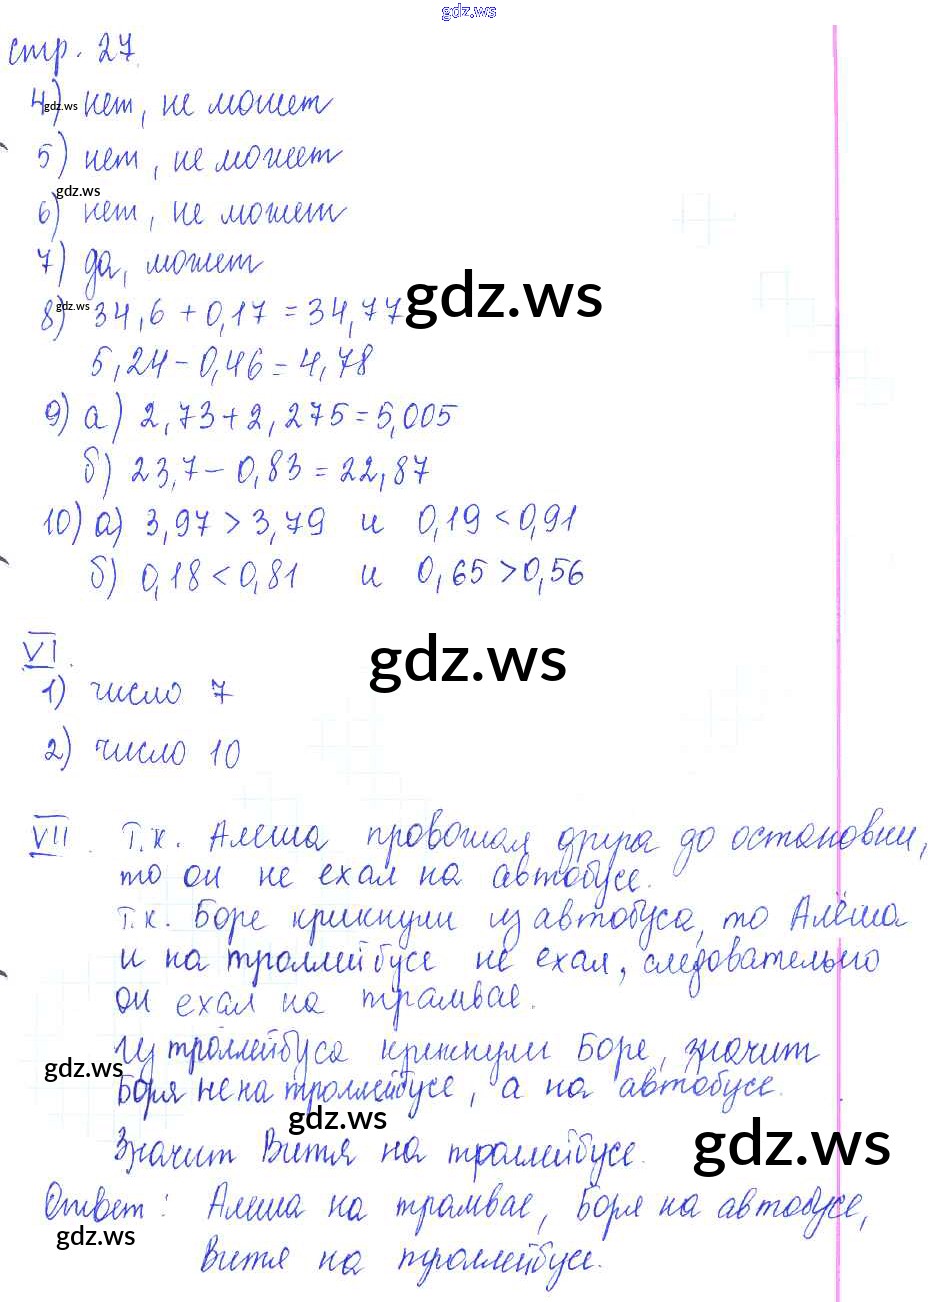 gdz.ws
стр. 27
4) нет, не может
gdz.ws
5) нет, не может
gdz.ws
6) нет, не может
7) да, может
gdz.ws
gdz.ws
8) 34,6 + 0,17 = 34,77
5,24 - 0,46 = 4,78
9) а) 2,73 + 2,275 = 5,005
б) 23,7 - 0,83 = 22,87
10) а) 3,97 > 3,79 и 0,19 < 0,91
б) 0,18 < 0,81 и 0,65 > 0,56
VI.
gdz.ws
1) число 7
2) число 10
VII. Т.к. Алёша провожал друга до остановки,
то он не ехал на автобусе.
Т.к. Боре крикнули из автобуса, то Алёша
и на троллейбусе не ехал, следовательно
он ехал на трамвае.
Из троллейбуса крикнули Боре, значит
gdz.ws
Боря не на троллейбусе, а на автобусе.
gdz.ws
gdz.ws
Значит Витя на троллейбусе.
Ответ: Алёша на трамвае, Боря на автобусе,
gdz.ws
Витя на троллейбусе.